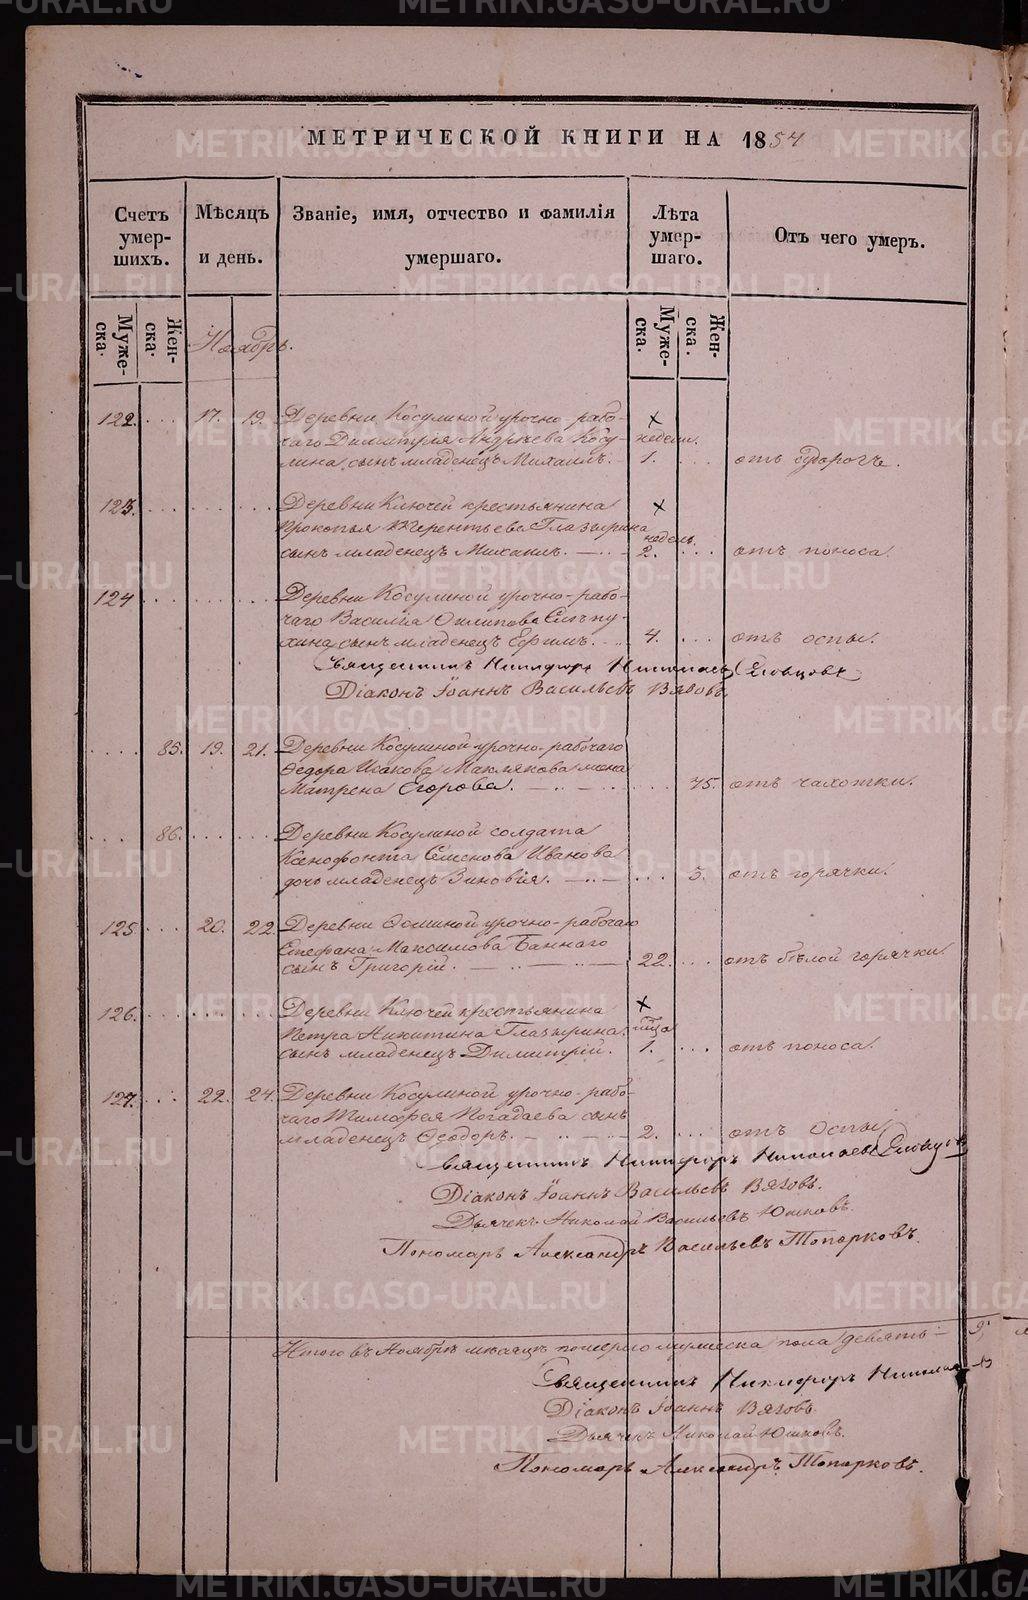 МЕТРИЧЕСКОЙ КНИГИ НА 1854
Счетъ умер-шихъ.
Мѣсяцъ и день.
Званіе, имя, отчество и фамилія умершаго.
Лѣта умер-шаго.
Отъ чего умеръ.
Муже-ска.
Жен-ска.
Ноябрь.
Муже-ска.
Жен-ска.
122. 17. 19. Деревни Косулиной урочно рабо-
чаго Димитрія Андрѣева Косу- недели.
лина сынъ младенецъ Михаилъ. 1. отъ судорогъ.
123. Деревни Ключей крестьянина
Прокопья Терентьева Глазырина недель.
сынъ младенецъ Михаилъ. 2. отъ поноса.
124 Деревни Косулиной урочно-рабо-
чаго Василія Филипова
сынъ младенецъ Ефимъ. 4. отъ оспы.
Священникъ Никифоръ Николаевъ Словцовъ
Діаконъ Іоаннъ Васильевъ Вязовъ.
85. 19. 21. Деревни Косулиной урочно-рабочаго
Ѳедора Исакова Маклакова жена
Матрена Егорова. 75. отъ чахотки.
86. Деревни Косулиной солдата
Ксенофонта Семенова Иванова
дочь младенецъ Зиновія. 3. отъ горячки.
125 20. 22. Деревни урочно-рабочаго
Стефана Максимова Баннаго
сынъ Григорій. 22. отъ бѣлой горячки.
126. Деревни Ключей крестьянина
Петра Никитина Глазырина
сынъ младенецъ Димитрій. 1. отъ поноса.
127. 22. 24. Деревни Косулиной урочно-рабо-
чаго Тимофея Погадаева сынъ
младенецъ Ѳеодоръ. 2. отъ оспы
Священникъ Никифоръ Николаевъ Словцовъ
Діаконъ Іоаннъ Васильевъ Вязовъ.
Дьячекъ Николай Васильевъ Юшковъ.
Пономарь Александръ Васильевъ Топорковъ.
Итого въ Ноябрѣ мѣсяцѣ померло мужеска пола девять 9,
Священникъ Никифоръ
Діаконъ Іоаннъ Вязовъ.
Дьячекъ Николай Юшковъ.
Пономарь Александръ Топорковъ.
METRIKI.GASO-URAL.RU